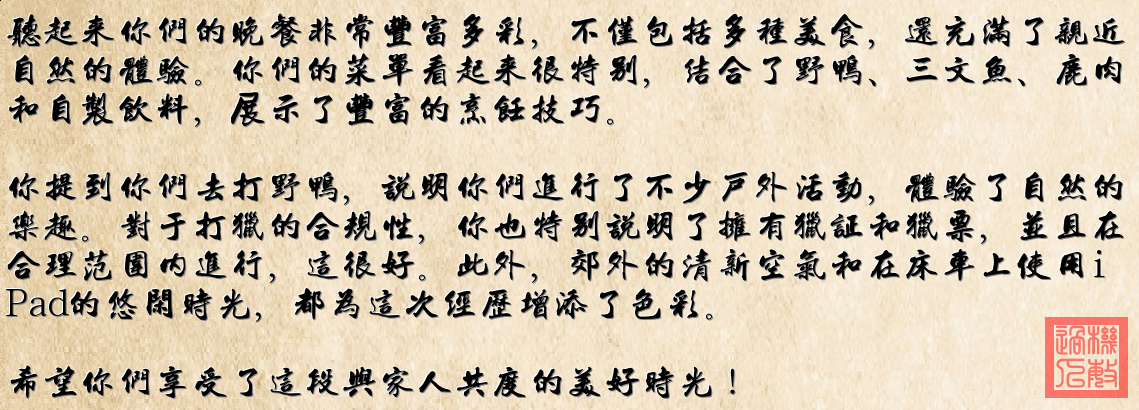 聽起来你們的晚餐非常豐富多彩，不僅包括多種美食，還充滿了親近
自然的體驗。你們的菜單看起来很特别，结合了野鴨、三文魚、鹿肉
和自製飲料，展示了豐富的烹飪技巧。
你提到你們去打野鴨，説明你們進行了不少戸外活動，體驗了自然的
樂趣。對于打獵的合規性，你也特别説明了擁有獵証和獵票，並且在
合理范圍内進行，這很好。此外，郊外的清新空氣和在床車上使用i
Pad的悠閑時光，都為這次經歷增添了色彩。
希望你們享受了這段與家人共度的美好時光！